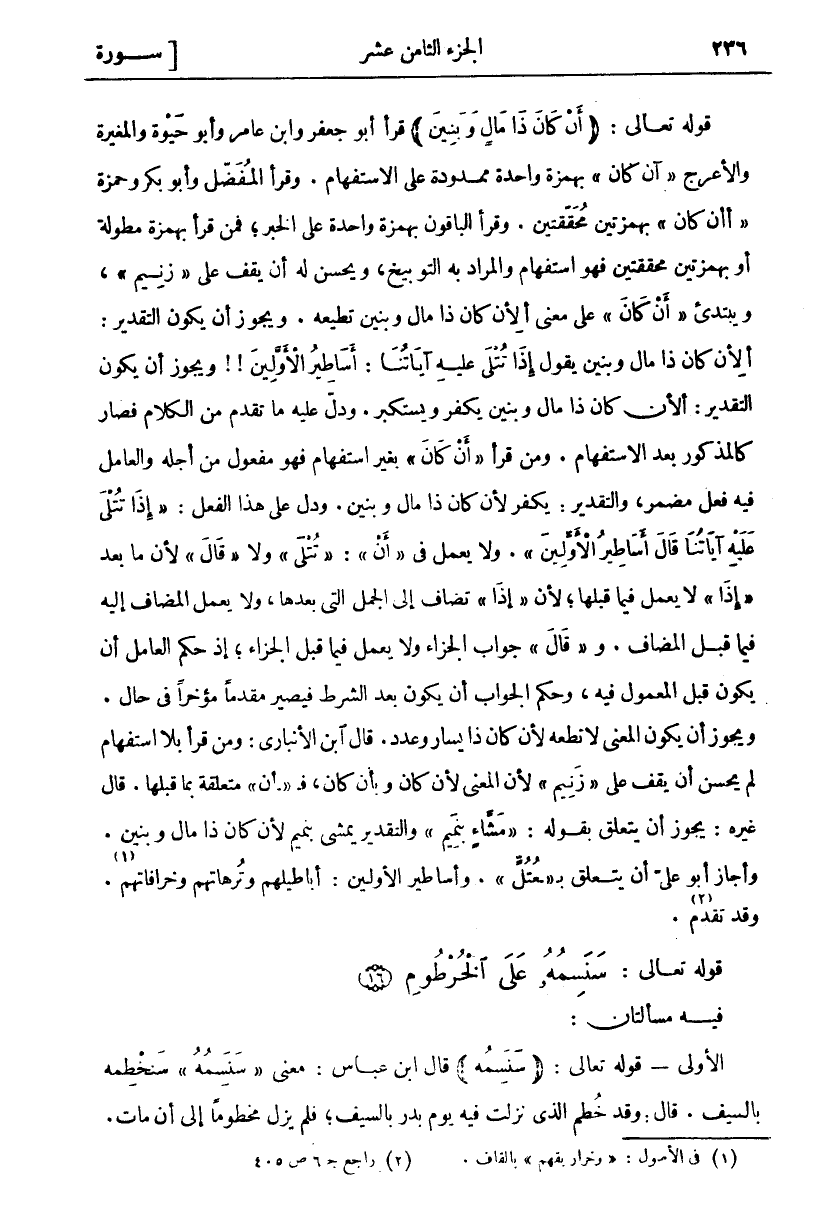 ٢٣٦ الجزء الثامن عشر [ سـورة
قوله تعـالى : ﴿ أَنْ كَانَ ذَا مَالٍ وَبَنِينَ ﴾ قرأ أبو جعفر وابن عامر وأبو حَيْوة والمغيرة
والأعرج « آن كان » بهمزة واحدة ممـدودة على الاستفهام . وقرأ المُفَضّل وأبو بكر وحمزة
« أأن كان » بهمزتين مُحَقّقتين . وقرأ الباقون بهمزة واحدة على الخبر ؛ فمن قرأ بهمزة مطولة
أو بهمزتين محققتين فهو استفهام والمراد به التوبيخ، ويحسن له أن يقف على « زنـيم » ،
ويبتدئ « أَنْ كَانَ » على معنى ألأن كان ذا مال وبنين تطيعه . ويجوز أن يكون التقدير :
ألأن كان ذا مال وبنين يقول إِذَا تُتْلَى عليـه آيَاتُنَـا : أَسَاطِيرُ الْأَوَّلِينَ !! ويجوز أن يكون
التقدير : ألأن كان ذا مال وبنين يكفر ويستكبر . ودلّ عليه ما تقدم من الكلام فصار
كالمذكور بعد الاستفهام . ومن قرأ « أَنْ كَانَ » بغير استفهام فهو مفعول من أجله والعامل
فيه فعل مضمر، والتقدير : يكفر لأن كان ذا مال وبنين . ودل على هذا الفعل : « إِذَا تُتْلَى
عَلَيْهِ آيَاتُنَا قَالَ أَسَاطِيرُ الْأَوَّلِينَ » . ولا يعمل فى « أَنْ » : « تُتْلَى » ولا « قَالَ » لأن ما بعد
« إِذَا » لا يعمل فيما قبلها ؛ لأن « إذا » تضاف إلى الجمل التى بعدها ، ولا يعمل المضاف إليه
فيما قبـل المضاف . و « قَالَ » جواب الجزاء ولا يعمل فيما قبل الجزاء ؛ إذ حكم العامل أن
يكون قبل المعمول فيه ، وحكم الجواب أن يكون بعد الشرط فيصير مقدماً مؤخراً فى حال .
ويجوز أن يكون المعنى لا تطعه لأن كان ذا يسار وعدد. قال ٱبن الأنبارى : ومن قرأ بلا استفهام
لم يحسن أن يقف على « زَنِيمٍ » لأن المعنى لأن كان وبأن كان، فـ « أن » متعلقة بما قبلها . قال
غيره : يجوز أن يتعلق بقـوله : « مَشَّاءٍ بِنَمِيمٍ » والتقدير يمشى بنميم لأن كان ذا مال وبنين .
وأجاز أبو علىّ أن يتـعلق بـ « عُتُلٍّ » . وأساطير الأولين : أباطيلهم وتُرهاتهم وخرافاتهم (١) .
وقد تقدّم (٢) .
قوله تعـالى : سَنَسِمُهُۥ عَلَى ٱلْخُرْطُومِ ﴿١٦﴾
فيـه مسألتان :
الأولى — قوله تعالى : ﴿ سَنَسِمُه ﴾ قال ابن عباس : معنى « سَنَسِمُهُ » سَنَخْطِمه
بالسيف . قال : وقد خُطم الذى نزلت فيه يوم بدر بالسيف ؛ فلم يزل مخطوماً إلى أن مات .
(١) فى الأصول : « وخراريقهم » بالقاف . (٢) راجع جـ ٦ ص ٤٠٥